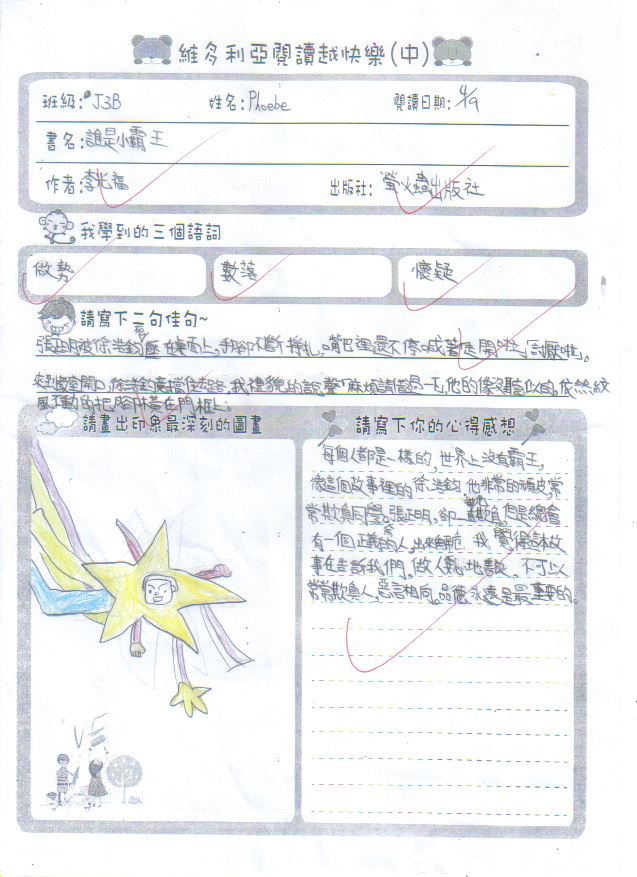 維多利亞閱讀越快樂(中)
班級: J3B 姓名: Phoebe 閱讀日期: 4/9
書名: 誰是小霸王
作者: 李光福 出版社: 螢火蟲出版社
我學到的三個語詞
做勢 數落 懷疑
請寫下二句佳句~
張正明被徐浩鈞壓在桌面上,手腳不斷掙扎,嘴巴裡還不停喊著走開啦,討厭啦。
教室門口,徐浩鈞擋住去路,我禮貌的說聲麻煩請借過一下,他的像沒聽似的,依然紋
風不動的把腳橫在門框上。
請畫出印象最深刻的圖畫 請寫下你的心得感想
每個人都是一樣的,世界上沒有霸王,
像這個故事裡的徐浩鈞他非常的頑皮常
常欺負同學。張正明,卻一直被欺負,但是總會
有一個正義的人,出來 我覺得該故
事在告訴我們,做人 不可以
常常欺負人,惡言相向,品德永遠是最重要的。